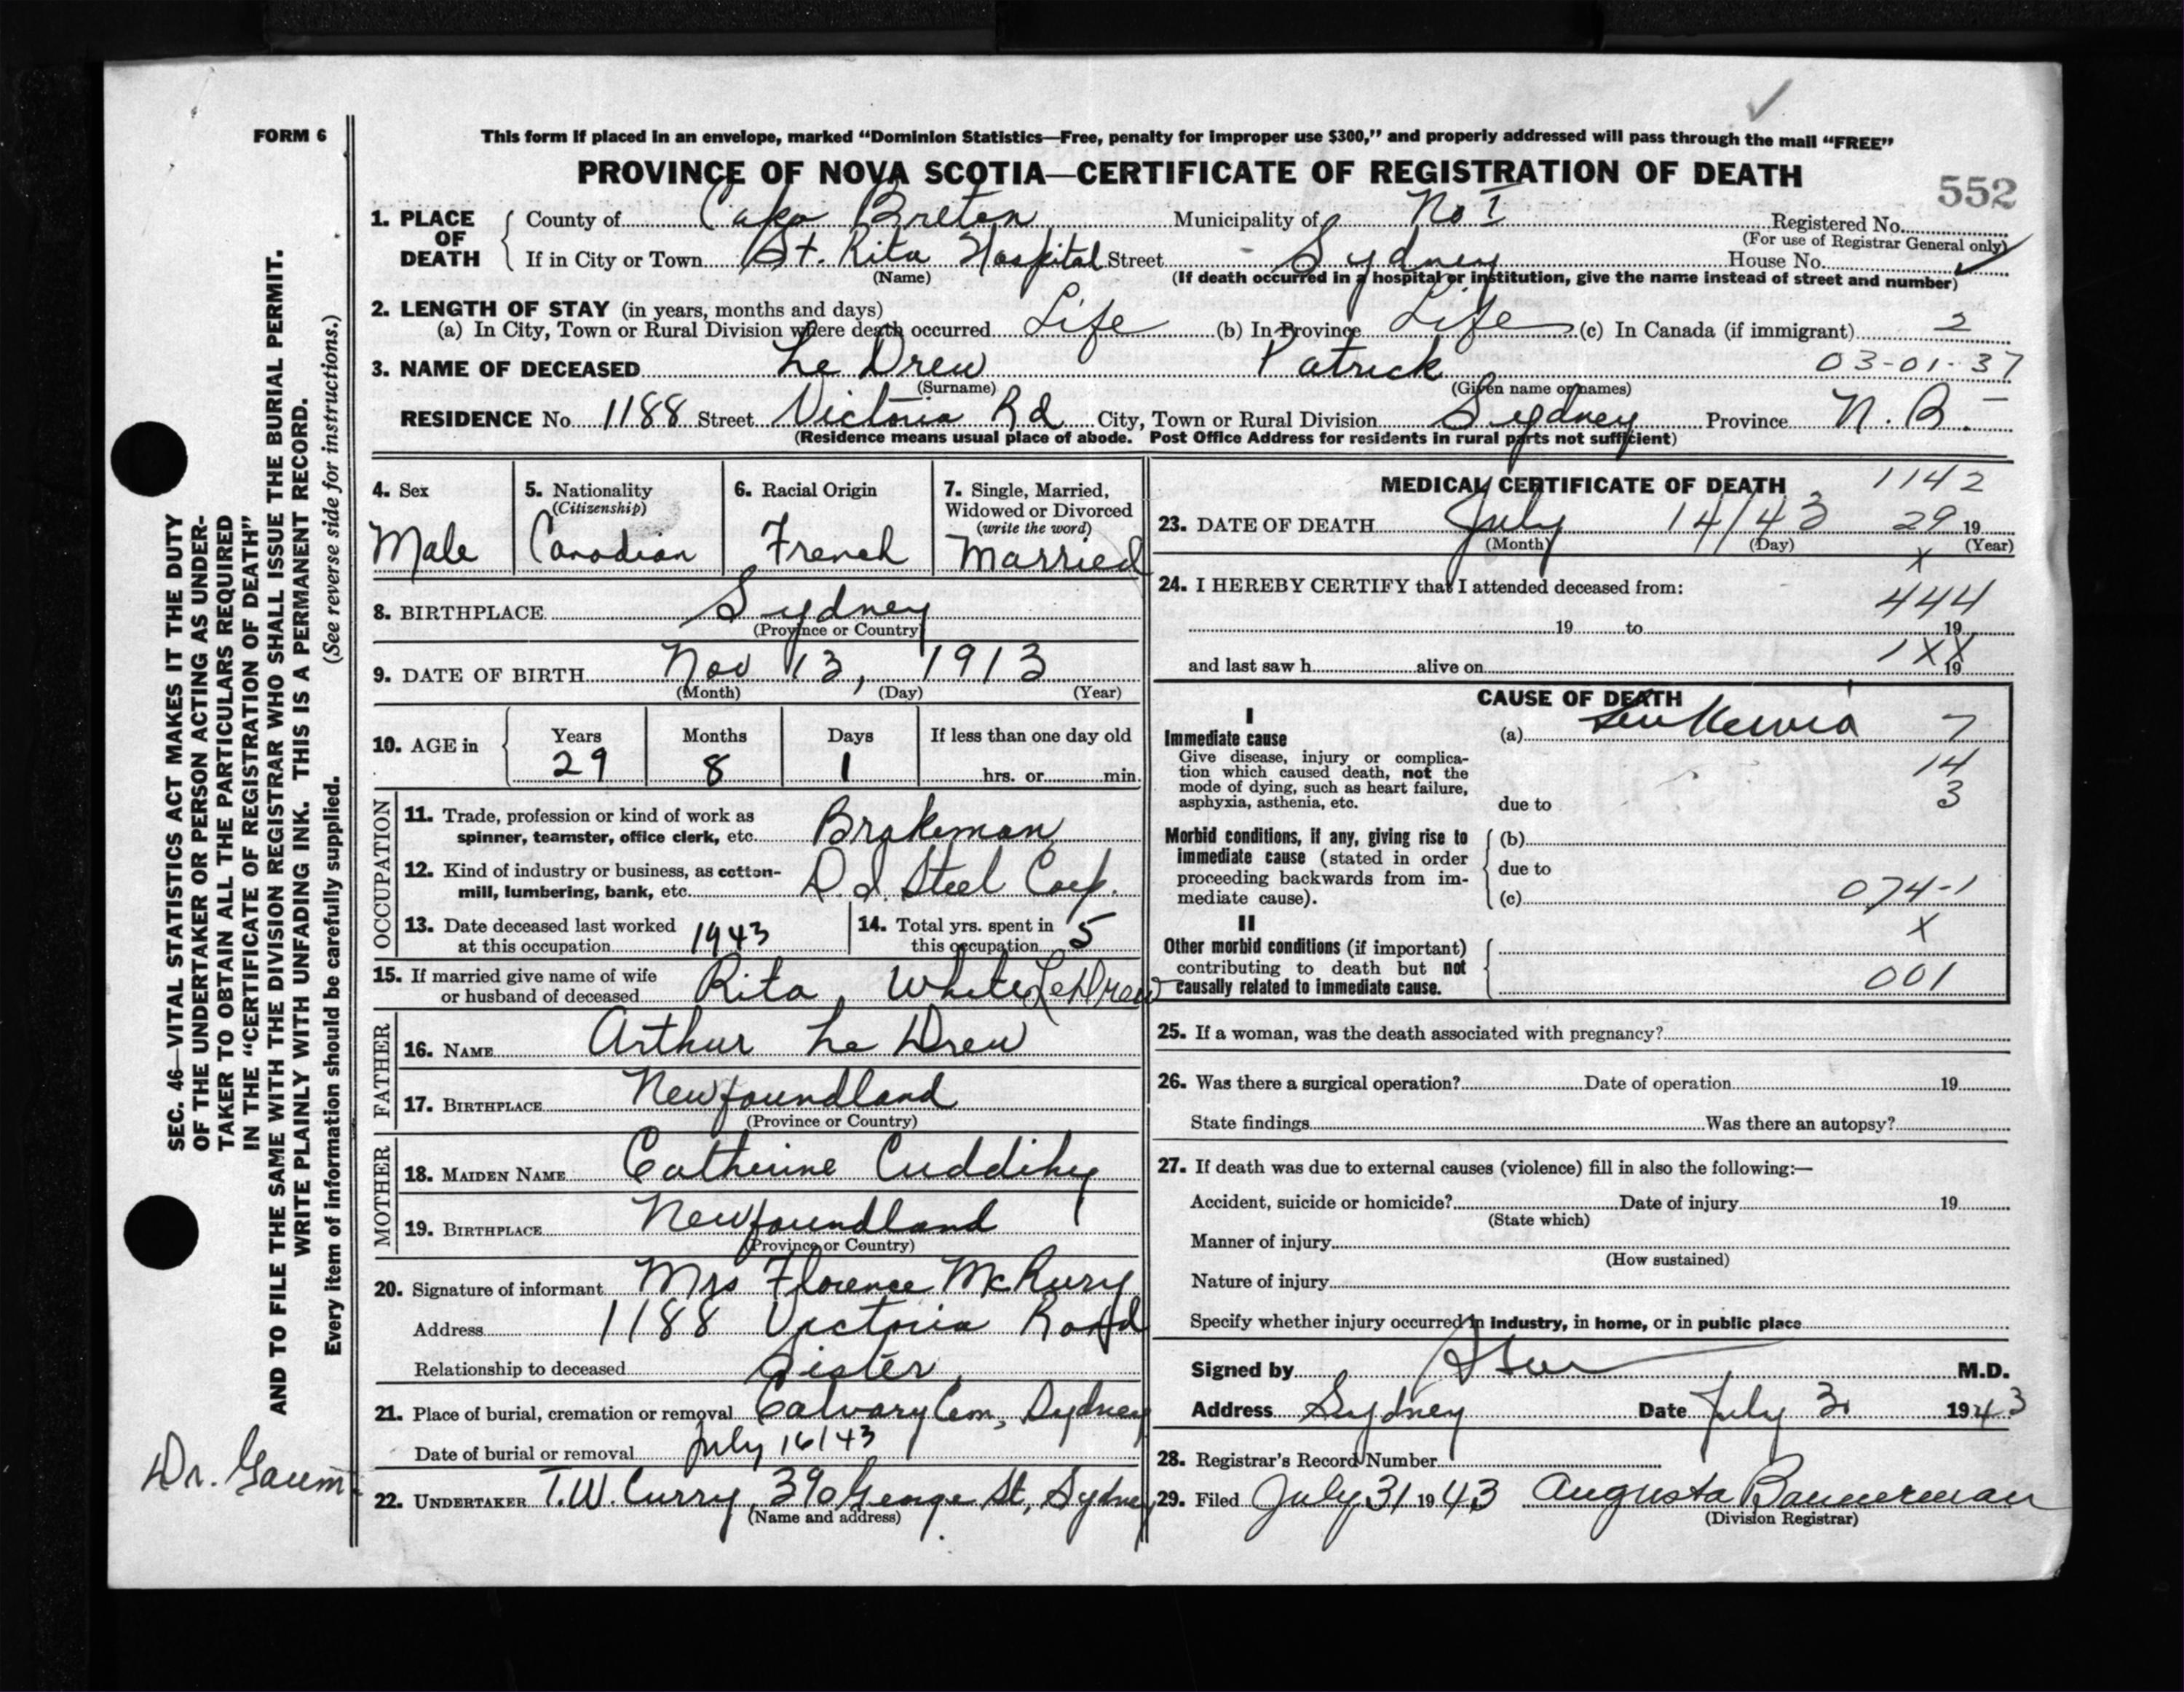 FORM 6
This form if placed in an envelope, marked "Dominion Statistics—Free, penalty for improper use $300," and properly addressed will pass through the mail "FREE"
PROVINCE OF NOVA SCOTIA—CERTIFICATE OF REGISTRATION OF DEATH
552
1. PLACE OF DEATH
County of Cape Breton Municipality of No I Registered No.
(For use of Registrar General only)
If in City or Town St. Rita Hospital Street Sydney House No.
(Name) (If death occurred in a hospital or institution, give the name instead of street and number)
2. LENGTH OF STAY (in years, months and days)
(a) In City, Town or Rural Division where death occurred Life (b) In Province Life (c) In Canada (if immigrant) 2
3. NAME OF DECEASED Le Drew Patrick 03-01-37
(Surname) (Given name or names)
RESIDENCE No. 1188 Street Victoria Rd City, Town or Rural Division Sydney Province N. B.
(Residence means usual place of abode. Post Office Address for residents in rural parts not sufficient)
4. Sex
Male
5. Nationality
(Citizenship)
Canadian
6. Racial Origin
French
7. Single, Married,
Widowed or Divorced
(write the word)
Married
8. BIRTHPLACE Sydney
(Province or Country)
9. DATE OF BIRTH Nov 13, 1913
(Month) (Day) (Year)
10. AGE in
Years Months Days If less than one day old
29 8 1 hrs. or min.
OCCUPATION
11. Trade, profession or kind of work as
spinner, teamster, office clerk, etc. Brakeman
12. Kind of industry or business, as cotton-
mill, lumbering, bank, etc. D.I. Steel Corp.
13. Date deceased last worked
at this occupation 1943
14. Total yrs. spent in
this occupation 5
15. If married give name of wife
or husband of deceased Rita, White LeDrew
FATHER
16. NAME Arthur Le Drew
17. BIRTHPLACE Newfoundland
(Province or Country)
MOTHER
18. MAIDEN NAME Catherine Cuddihy
19. BIRTHPLACE Newfoundland
(Province or Country)
20. Signature of informant Mrs Florence McRury
Address 1188 Victoria Road
Relationship to deceased Sister
21. Place of burial, cremation or removal Calvary Cem, Sydney
Date of burial or removal July 16/43
22. UNDERTAKER T.W. Curry, 390 George St, Sydney
(Name and address)
MEDICAL CERTIFICATE OF DEATH 1142
23. DATE OF DEATH July 14/43 29 19
(Month) (Day) (Year)
X
24. I HEREBY CERTIFY that I attended deceased from:
444
19 to 19
1XX
and last saw h alive on 19
CAUSE OF DEATH
I
Immediate cause (a) Leukemia 7
Give disease, injury or complica-
tion which caused death, not the
mode of dying, such as heart failure,
asphyxia, asthenia, etc.
14
3
due to
Morbid conditions, if any, giving rise to
immediate cause (stated in order
proceeding backwards from im-
mediate cause).
(b)
due to
(c) 074-1
II
X
Other morbid conditions (if important)
contributing to death but not
causally related to immediate cause.
001
25. If a woman, was the death associated with pregnancy?
26. Was there a surgical operation? Date of operation 19
State findings Was there an autopsy?
27. If death was due to external causes (violence) fill in also the following:—
Accident, suicide or homicide? Date of injury 19
(State which)
Manner of injury
(How sustained)
Nature of injury
Specify whether injury occurred in industry, in home, or in public place
Signed by M.D.
Address Sydney Date July 31 1943
28. Registrar's Record Number
29. Filed July 31 1943 Augusta Bannerman
(Division Registrar)
SEC. 46—VITAL STATISTICS ACT MAKES IT THE DUTY
OF THE UNDERTAKER OR PERSON ACTING AS UNDER-
TAKER TO OBTAIN ALL THE PARTICULARS REQUIRED
IN THE "CERTIFICATE OF REGISTRATION OF DEATH"
AND TO FILE THE SAME WITH THE DIVISION REGISTRAR WHO SHALL ISSUE THE BURIAL PERMIT.
WRITE PLAINLY WITH UNFADING INK. THIS IS A PERMANENT RECORD.
Every item of information should be carefully supplied. (See reverse side for instructions.)
Dr. Gaum